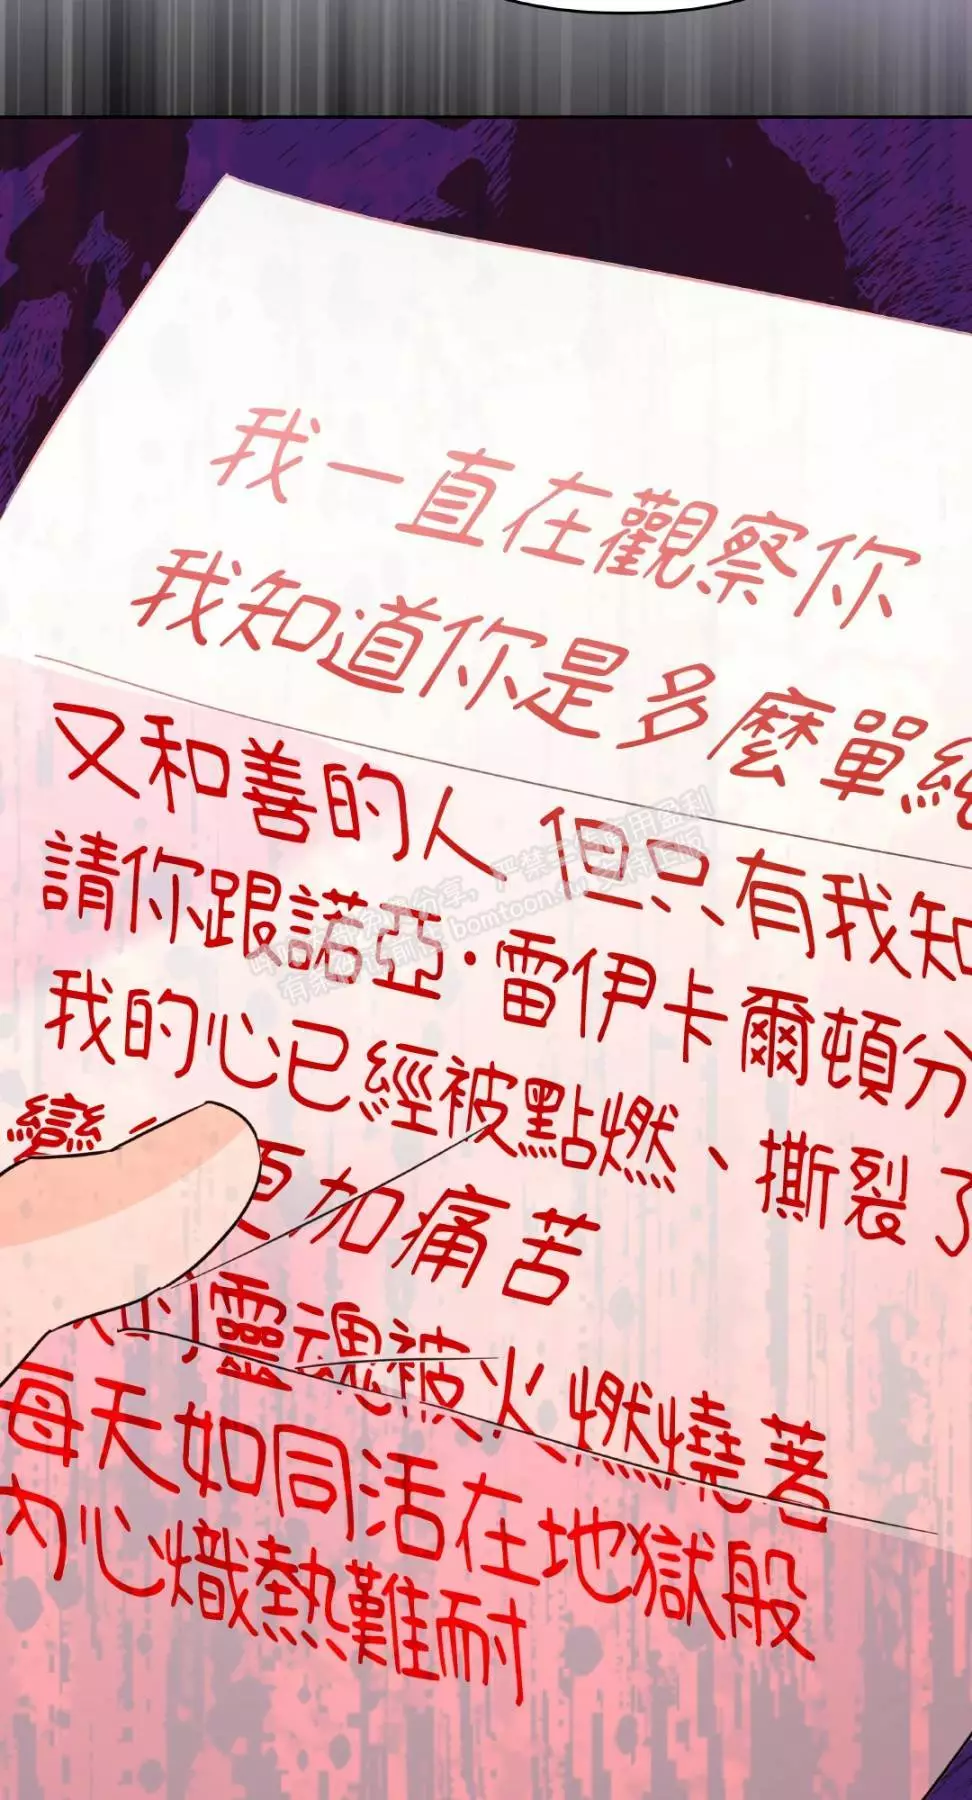 我一直在觀察你
我知道你是多麼單純
又和善的人 但只有我知
請你跟諾亞·雷伊卡爾頓分
我的心已經被點燃、撕裂了
變 更加痛苦
的靈魂被火燃燒著
每天如同活在地獄般
內心熾熱難耐
bomtoon.tw 支持正版